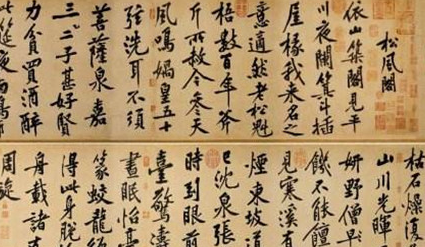 松風閣
依山築閣見平
川夜闌箕斗插
屋椽我来名之
意適然老松魁
梧數百年斧
斤所赦今參天
風鳴媧皇五十
弦洗耳不須
菩薩泉嘉
三二子甚好賢
力貧買酒醉
此筵夜雨鳴
枯石燥復
山川光暉
妍野僧早
飢不能饘
見寒溪
煙東坡道
已沈泉張
時到眼前
臺驚濤
晝眠怡亭
篆蛟龍
得此身脫
舟載諸
周旋